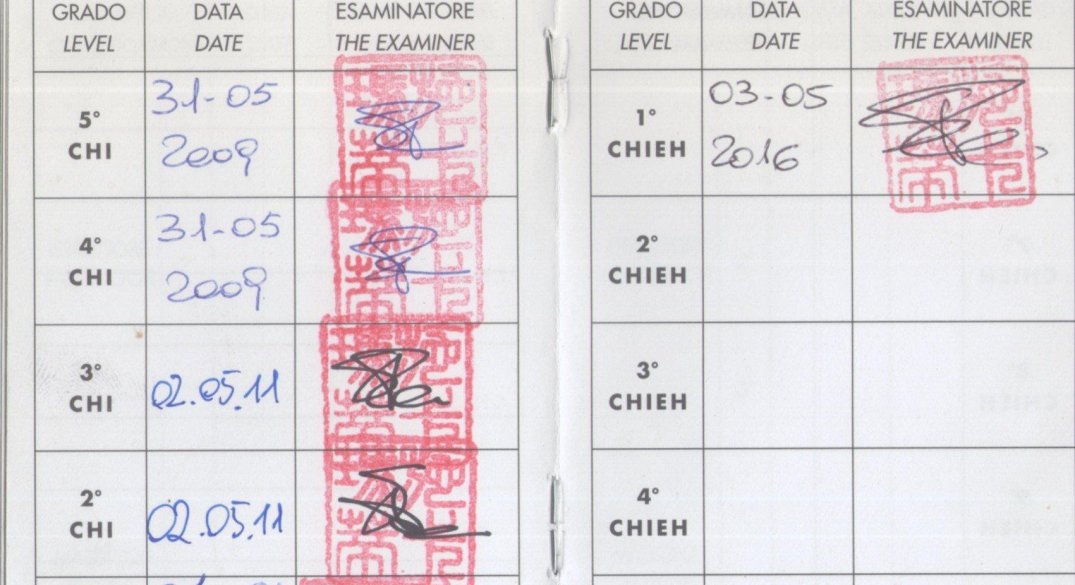 GRADO DATA ESAMINATORE
LEVEL DATE THE EXAMINER
5° CHI 31-05 2009
4° CHI 31-05 2009
3° CHI 02.05.11
2° CHI 02.05.11
GRADO DATA ESAMINATORE
LEVEL DATE THE EXAMINER
1° CHIEH 03-05 2016
2° CHIEH
3° CHIEH
4° CHIEH